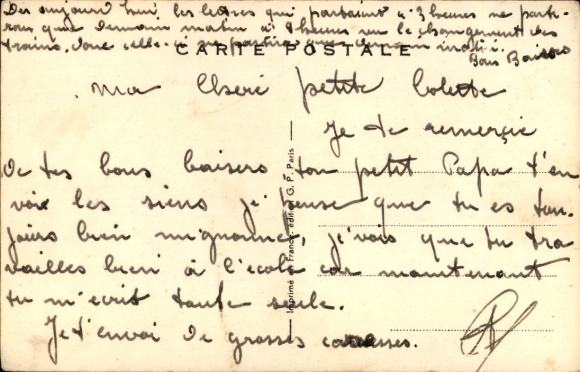 Des aujourd'hui les lettres qui partaient à 3 heures ne parti-
rons que demain matin à 8 heures vu le changement des
trains, donc celle-ci ne partira que demain midi.
Bons Baisers
CARTE POSTALE
Ma Cheré petite Colette
Je te remercie
de tes bons baisers, ton petit Papa t'en
voie les siens je pense que tu es tou-
jours bien mignonne, je vois que tu tra
vailles bien à l'école car maintenant
tu m'ecrit toute seule.
Je t'envoi de grosses caresses.
Imprimé en France, édition G. P. Paris